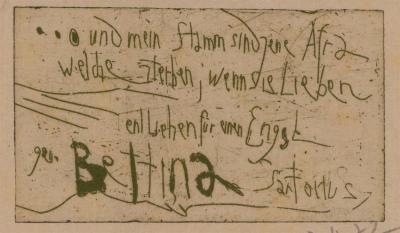 ...und mein Stamm sind jene Asra
welche sterben, wenn sie Lieben
für einen
gew. Bettina Sartorius